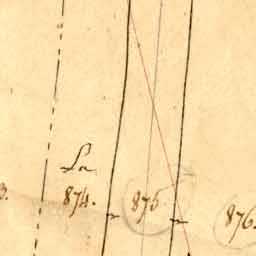 La
3. 874. 875. 876.